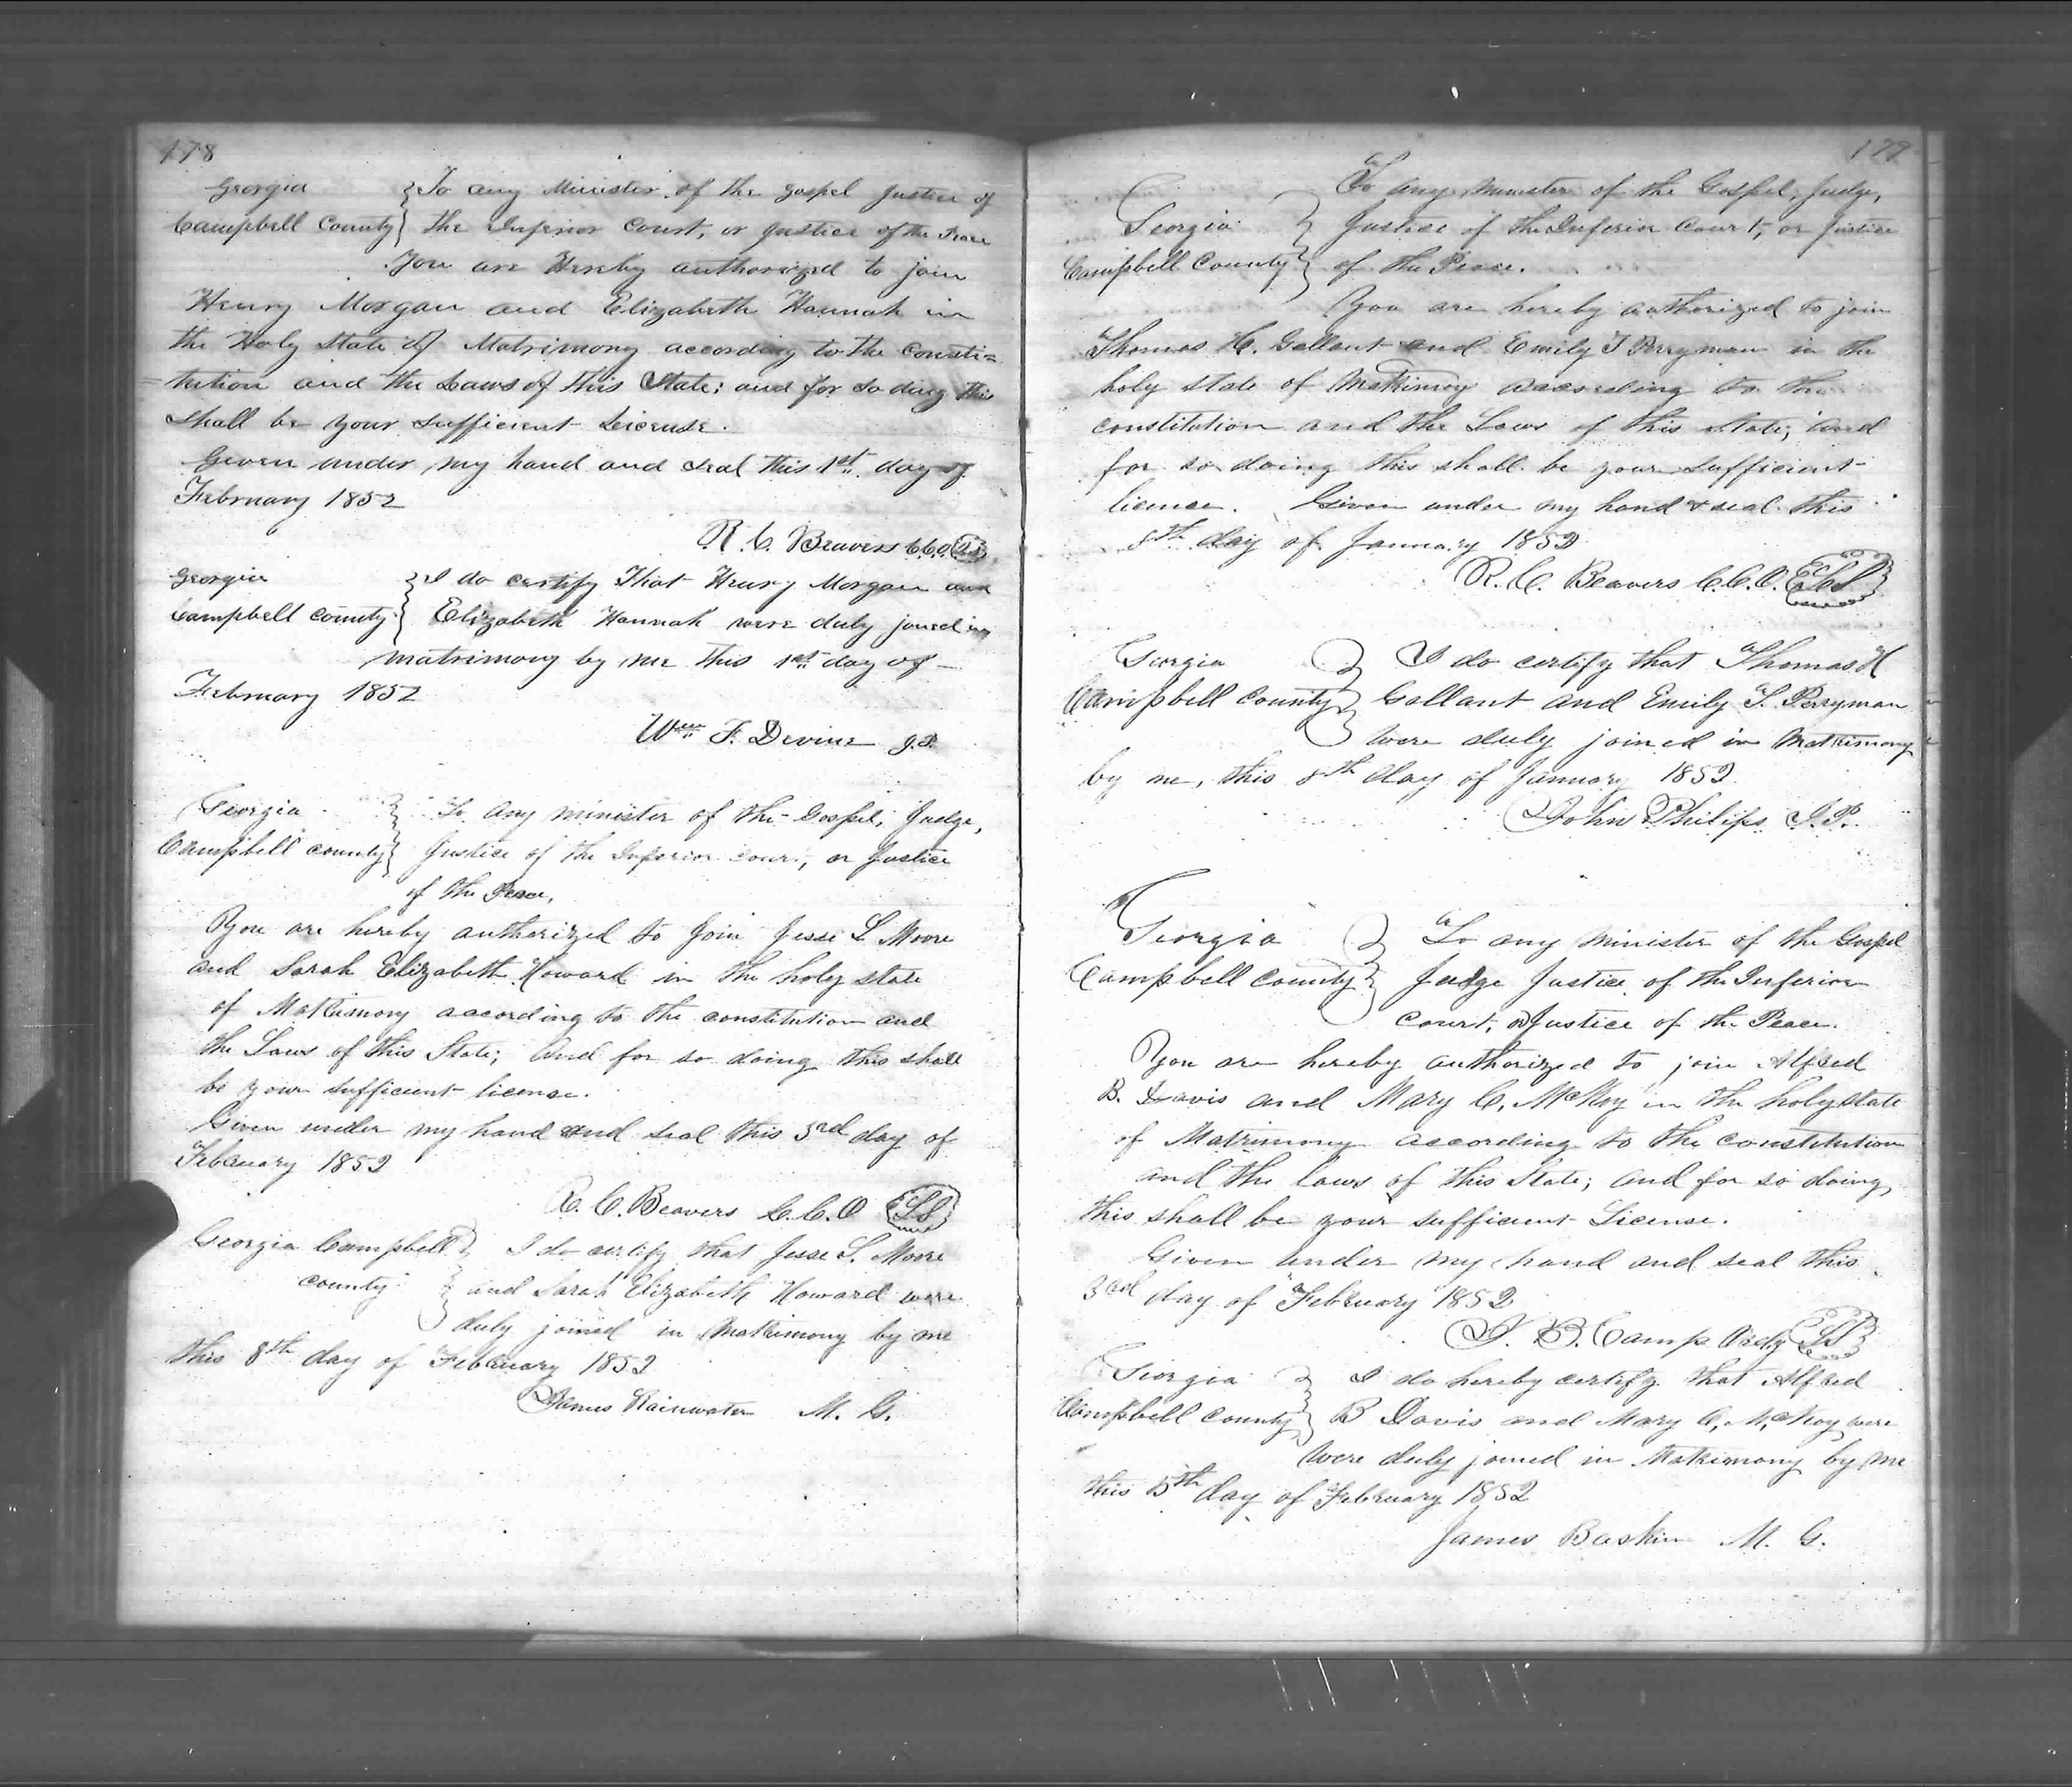 178
Georgia } To any Minister of the gospel Justice of
Campbell County } the Inferior Court, or Justice of the Peace
You are Hereby authorized to join
Henry Morgan and Elizabeth Hannah in
the Holy State of Matrimony according to the Consti=
=tution and the Laws of this State: and for so doing this
shall be your sufficient License.
Given under my hand and seal this 1st day of
February 1852
R. C. Beavers C.C.O. L.S.
Georgia } I do certify That Henry Morgan and
Campbell County } Elizabeth Hannah were duly joined in
matrimony by me this 1st day of
February 1852
Wm F. Devine J.P.
Georgia } To any minister of the Gospel, Judge,
Campbell County } Justice of the Inferior Court, or Justice
of the Peace,
You are hereby authorized to Join Jesse L Moore
and Sarah Elizabeth Howard in the holy state
of Matrimony according to the constitution and
the Laws of this State; And for so doing this shall
be your sufficient license.
Given under my hand and seal this 3rd day of
February 1852
R. C. Beavers C.C.O LS
Georgia Campbell } I do certify that Jesse L. Moore
County } and Sarah Elizabeth Howard were
duly joined in Matrimony by me
this 8th day of February 1852
James Rainwater M. G.
179
To any minister of the Gospel, Judge,
Georgia } Justice of the Inferior Court, or Justice
Campbell County } of the Peace.
You are hereby authorized to join
Thomas H. Gallant and Emily T Perryman in the
holy state of Matrimony according to the
constitution and the Laws of this State; and
for so doing this shall be your sufficient
licence. Given under my hand & seal this
8th day of January 1852
R. C. Beavers C.C.O. LS
Georgia } I do certify that Thomas H
Campbell County } Gallant and Emily T. Perryman
were duly joined in Matrimony
by me, this 8th day of January 1852
John Philips J.P.
Georgia } To any Minister of the Gospel
Campbell County } Judge Justice of the Inferior
Court, or Justice of the Peace.
You are hereby authorized to join Alfred
B. Davis and Mary C. McKoy in the holy state
of Matrimony according to the constitution
and the laws of this State; and for so doing,
this shall be your sufficient License.
Given under my hand and seal this
3rd day of February 1852
B. Camp Ordy LS
Georgia } I do hereby certify that Alfred
Campbell County } B Davis and Mary C. McKoy were
were duly joined in Matrimony by me
this 5th day of February 1852
James Baskin M. G.